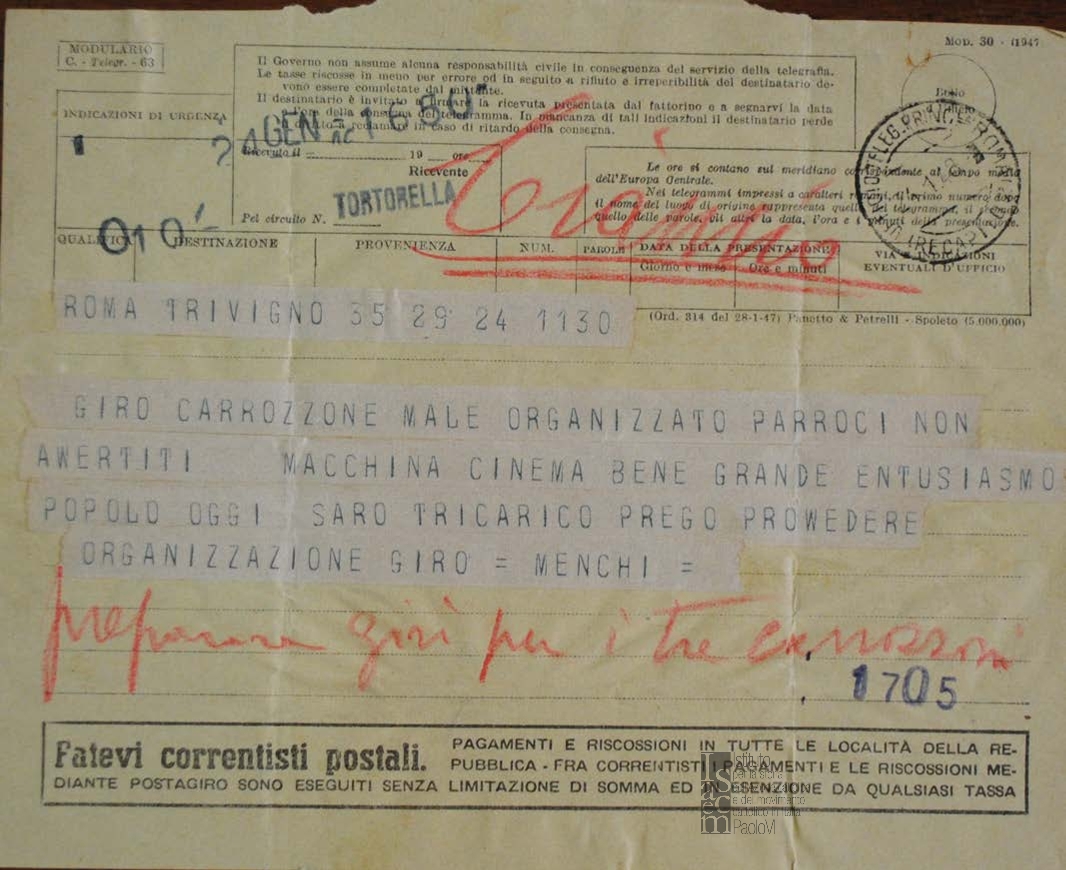 MODULARIO
C. - Telegr. - 63
MOD. 30 - (1947
INDICAZIONI DI URGENZA
Il Governo non assume alcuna responsabilità civile in conseguenza del servizio della telegrafia.
Le tasse riscosse in meno per errore od in seguito a rifiuto e irreperibilità del destinatario de-
vono essere completate dal mittente.
Il destinatario è invitato a firmare la ricevuta presentata dal fattorino e a segnarvi la data
e l'ora della consegna del telegramma. In mancanza di tali indicazioni il destinatario perde
diritto a reclamare in caso di ritardo della consegna.
Ricevuto il 19 ore
Ricevente
TORTORELLA
Pel circuito N.
Bollo
Le ore si contano sul meridiano corrispondente al tempo medio
dell'Europa Centrale.
Nei telegrammi impressi a caratteri romani, il primo numero dopo
il nome del luogo di origine rappresenta quello del telegramma, il
quello delle parole, gli altri la data, l'ora e i minuti della presentazione.
010
QUALIFICA DESTINAZIONE PROVENIENZA NUM. PAROLE DATA DELLA PRESENTAZIONE
Giorno e mese Ore e minuti
VIA E INDICAZIONI
EVENTUALI D'UFFICIO
ROMA TRIVIGNO 35 29 24 1130
(Ord. 314 del 28-1-47) Panetto & Petrelli - Spoleto (5.000.000)
GIRO CARROZZONE MALE ORGANIZZATO PARROCI NON
AWERTITI MACCHINA CINEMA BENE GRANDE ENTUSIASMO
POPOLO OGGI SARO TRICARICO PREGO PROWEDERE
ORGANIZZAZIONE GIRO = MENCHI =
preparare giri per i tre carrozzoni
1705
Fatevi correntisti postali.
PAGAMENTI E RISCOSSIONI IN TUTTE LE LOCALITÀ DELLA RE-
PUBBLICA - FRA CORRENTISTI PAGAMENTI E LE RISCOSSIONI ME-
DIANTE POSTAGIRO SONO ESEGUITI SENZA LIMITAZIONE DI SOMMA ED IN ESENZIONE DA QUALSIASI TASSA
Istituto
per la storia
e del movimento
cattolico in Italia
Paolo VI